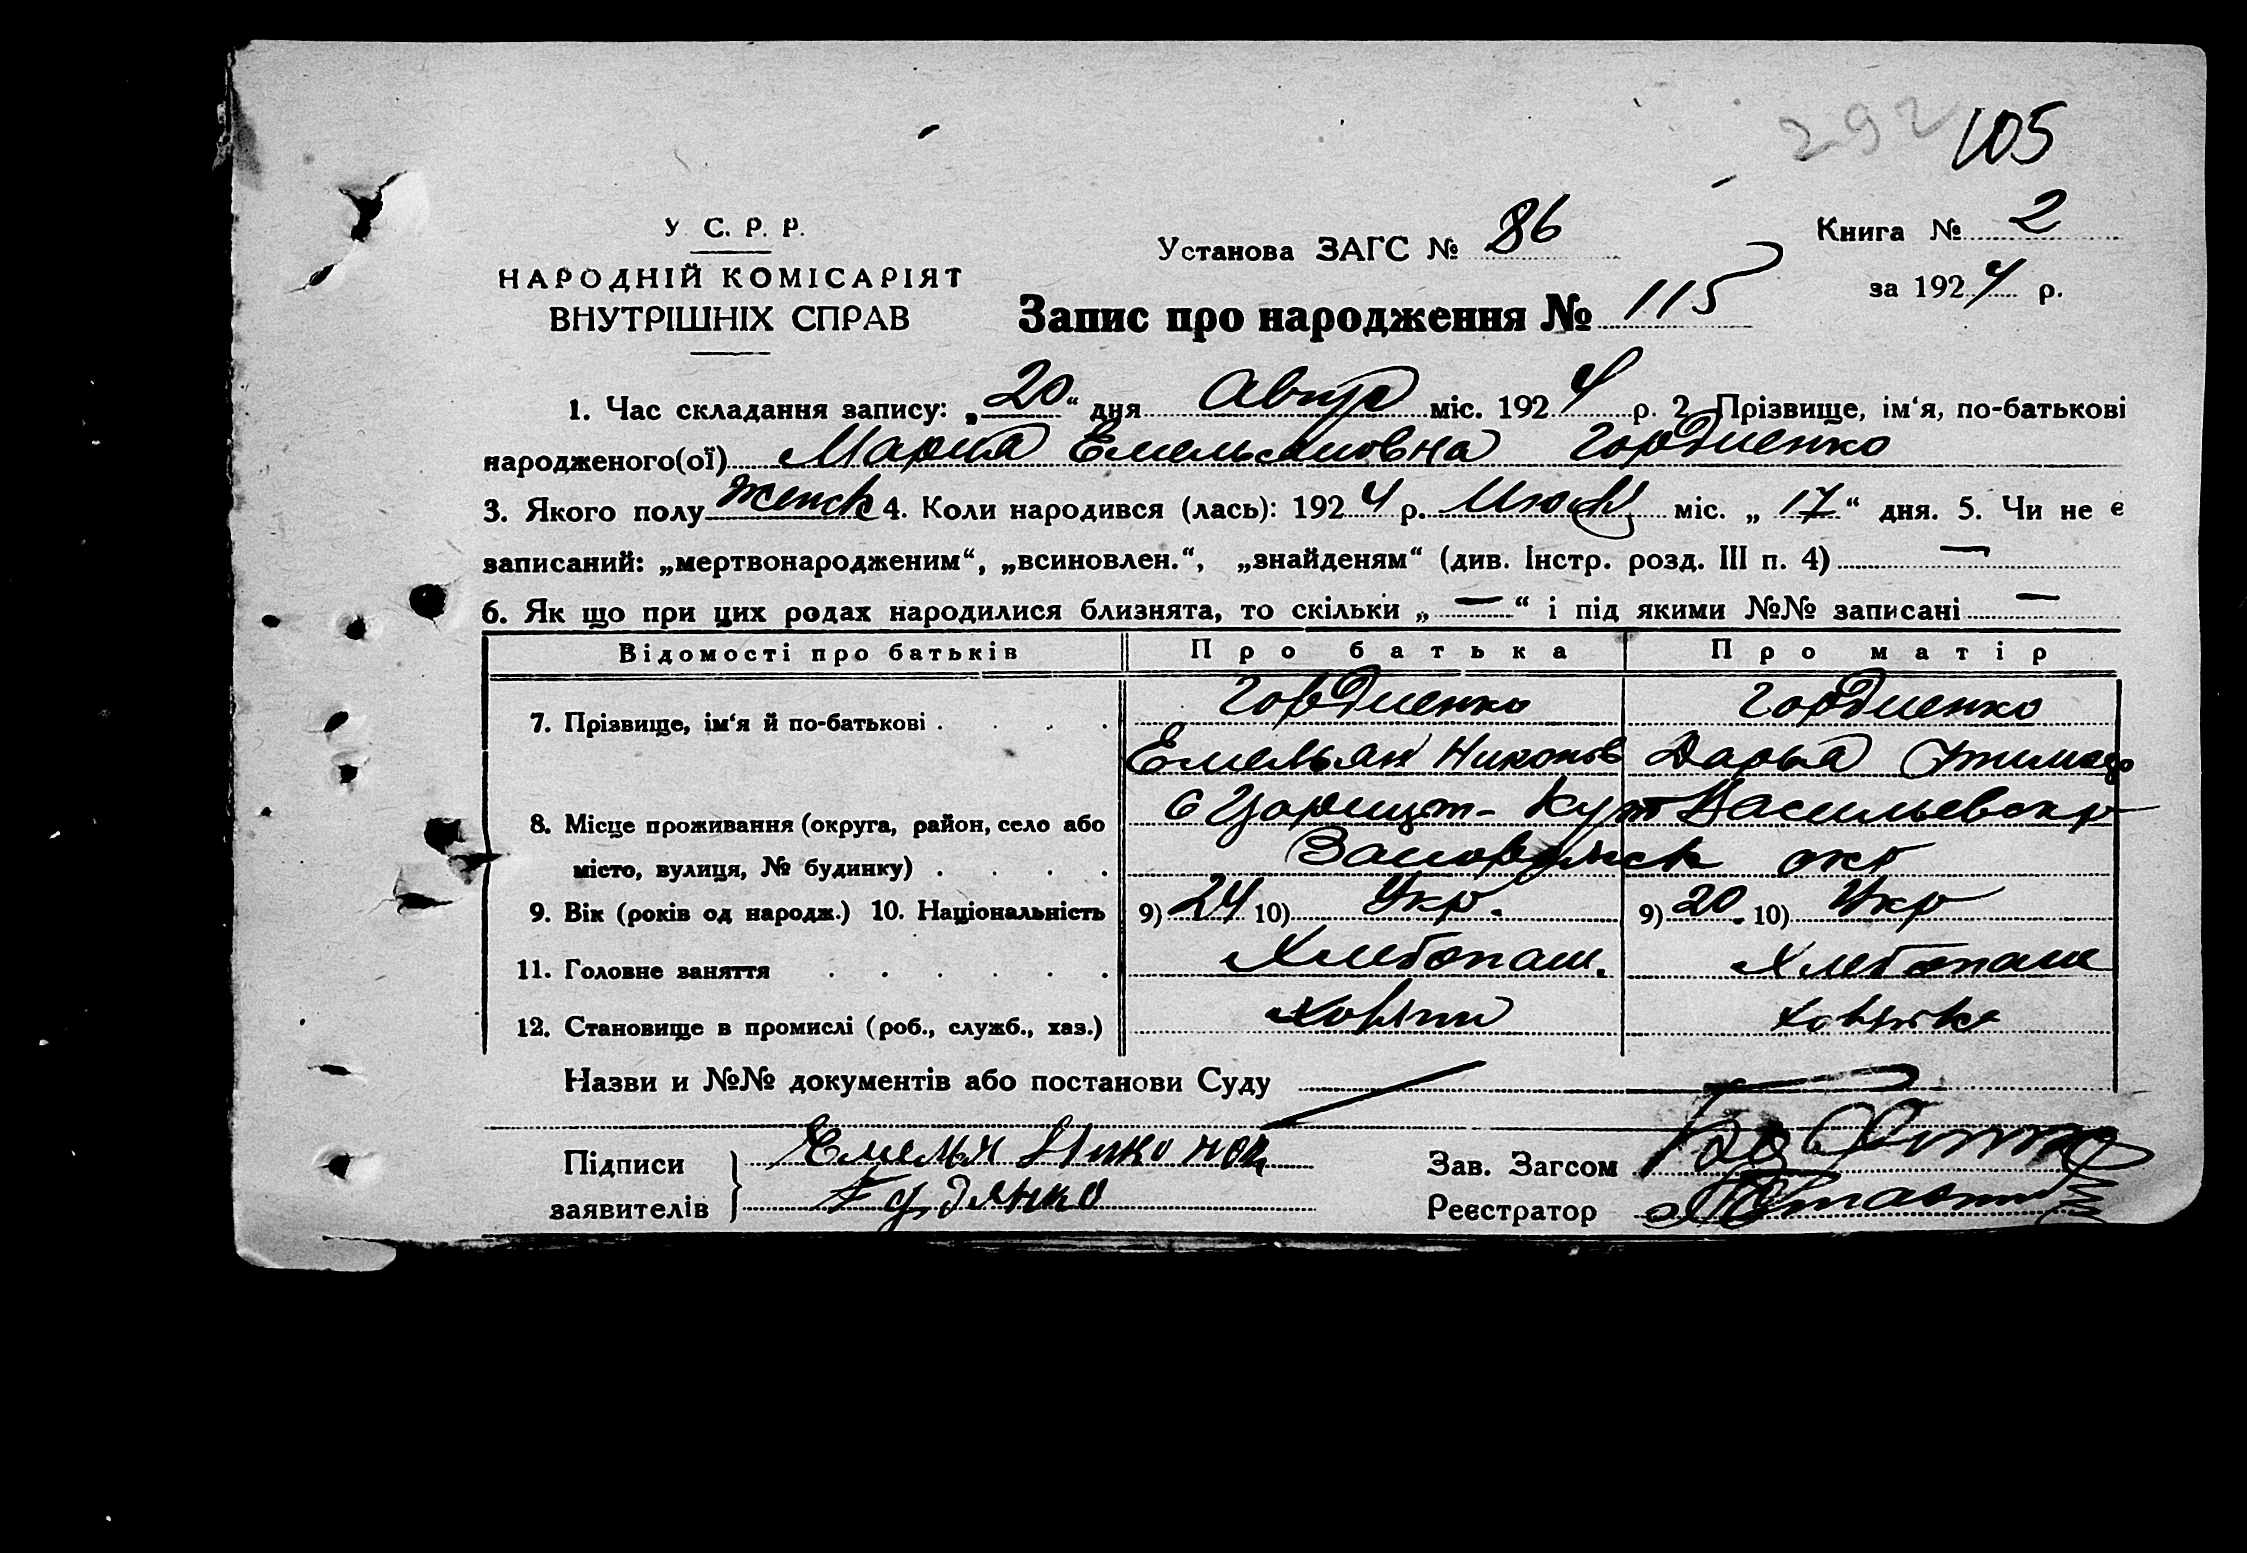 292 105
У С. Р. Р.
НАРОДНІЙ КОМІСАРІЯТ
ВНУТРІШНІХ СПРАВ
Установа ЗАГС № 86
Книга № 2
за 1924 р.
Запис про народження № 115
1. Час складання запису: „20“ дня Авгус міс. 1924 р. 2. Прізвище, ім‘я, по-батькові
народженого(ої) Мария Емельяновна Гордиенко
3. Якого полу женск 4. Коли народився (лась): 1924 р. Июля міс. „17“ дня. 5. Чи не є
записаний: „мертвонародженим“, „всиновлен.“, „знайденям“ (див. Інстр. розд. III п. 4) —
6. Як що при цих родах народилися близнята, то скільки „—“ і під якими №№ записані —
Відомості про батьків Про батька Про матір
7. Прізвище, ім‘я й по-батькові . . . . Гордиенко Гордиенко
Емельян Никонов Дарья
8. Місце проживання (округа, район, село або с Царицын- Кут Васильевск р
місто, вулиця, № будинку) . . . . Запорожск окг
9. Вік (років од народж.) 10. Національність 9) 24 10) Укр. 9) 20. 10) Укр
11. Головне заняття . . . . . . Хлебопаш. Хлебопаш
12. Становище в промислі (роб., служб., хаз.) Хозяин Хозяйка
Назви и №№ документів або постанови Суду
Підписи Емельян Никонов
заявителів Гордиенко
Зав. Загсом
Реєстратор